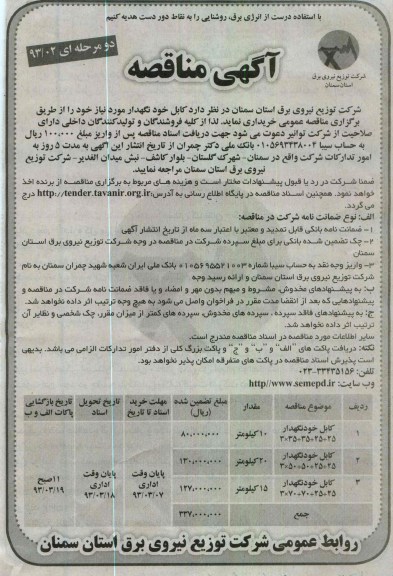 با استفاده درست از انرژی برق، روشنایی را به نقاط دور دست هدیه کنیم
دو مرحله ای ۹۳/۰۲
آگهی مناقصه
شرکت توزیع نیروی برق
استان سمنان
شرکت توزیع نیروی برق استان سمنان در نظر دارد کابل خود نگهدار مورد نیاز خود را از طریق
برگزاری مناقصه عمومی خریداری نماید. لذا از کلیه فروشندگان و تولیدکنندگان داخلی دارای
صلاحیت از شرکت توانیر دعوت می شود جهت دریافت اسناد مناقصه پس از واریز مبلغ ۱۰۰،۰۰۰ ریال
به حساب سیبا ۰۱۰۵۶۹۳۴۳۸۰۰۴ بانک ملی دکتر چمران از تاریخ انتشار این آگهی به مدت ۵ روز به
امور تدارکات شرکت واقع در سمنان- شهرک گلستان- بلوار کاشف- نبش میدان الغدیر- شرکت توزیع
نیروی برق استان سمنان مراجعه نمایید.
ضمنا شرکت در رد یا قبول پیشنهادات مختار است و هزینه های مربوط به برگزاری مناقصه از برنده اخذ
خواهد نمود. همچنین اسناد مناقصه در پایگاه اطلاع رسانی به آدرس http://tender.tavanir.org.ir درج
می گردد.
الف: نوع ضمانت نامه شرکت در مناقصه:
۱- ضمانت نامه بانکی قابل تمدید و معتبر با اعتبار سه ماه از تاریخ انتشار آگهی
۲- چک تضمین شده بانکی برای مبلغ سپرده شرکت در مناقصه در وجه شرکت توزیع نیروی برق استان
سمنان
۳- واریز وجه نقد به حساب سیبا شماره ۰۱۰۵۶۹۵۵۲۱۰۰۳ بانک ملی ایران شعبه شهید چمران سمنان به نام
شرکت توزیع نیروی برق استان سمنان و ارائه رسید وجه
ب: به پیشنهادهای مخدوش، مشروط و مبهم بدون مهر و امضاء و یا فاقد ضمانت نامه شرکت در مناقصه و
پیشنهادهایی که بعد از انقضا مدت مقرر در فراخوان واصل می شود به هیچ وجه ترتیب اثر داده نخواهد شد.
ج: به پیشنهادهای فاقد سپرده ، سپرده های مخدوش، سپرده های کمتر از میزان مقرر، چک شخصی و نظایر آن
ترتیب اثر داده نخواهد شد.
سایر اطلاعات مورد مناقصه در اسناد مناقصه مندرج است.
نکته: دریافت پاکت های "الف" و "ب" و "ج" و پاکت بزرگ کلی از دفتر امور تدارکات الزامی می باشد. بدیهی
است پذیرش اسناد مناقصه در پاکت های متفرقه امکان پذیر نخواهد بود.
تلفن: ۳۳۴۳۵۱۵۶-۰۲۳
وب سایت: http//www.semepd.ir
ردیف موضوع مناقصه مقدار مبلغ تضمین شده (ریال) مهلت خرید اسناد تا تاریخ تاریخ تحویل اسناد تاریخ بازگشایی پاکات الف و ب
۱ کابل خودنگهدار ۲۵-۲۵-۳۵-۳۵×۳ ۱۰کیلومتر ۸۰،۰۰۰،۰۰۰
۲ کابل خودنگهدار ۲۵-۲۵-۵۰-۵۰×۳ ۲۰کیلومتر ۱۳۰،۰۰۰،۰۰۰
۳ کابل خودنگهدار ۲۵-۲۵-۷۰-۷۰×۳ ۱۵کیلومتر ۱۲۷،۰۰۰،۰۰۰
پایان وقت اداری ۹۳/۰۳/۰۷ پایان وقت اداری ۹۳/۰۳/۱۸ ۱۱صبح ۹۳/۰۳/۱۹
جمع ۳۳۷،۰۰۰،۰۰۰
روابط عمومی شرکت توزیع نیروی برق استان سمنان